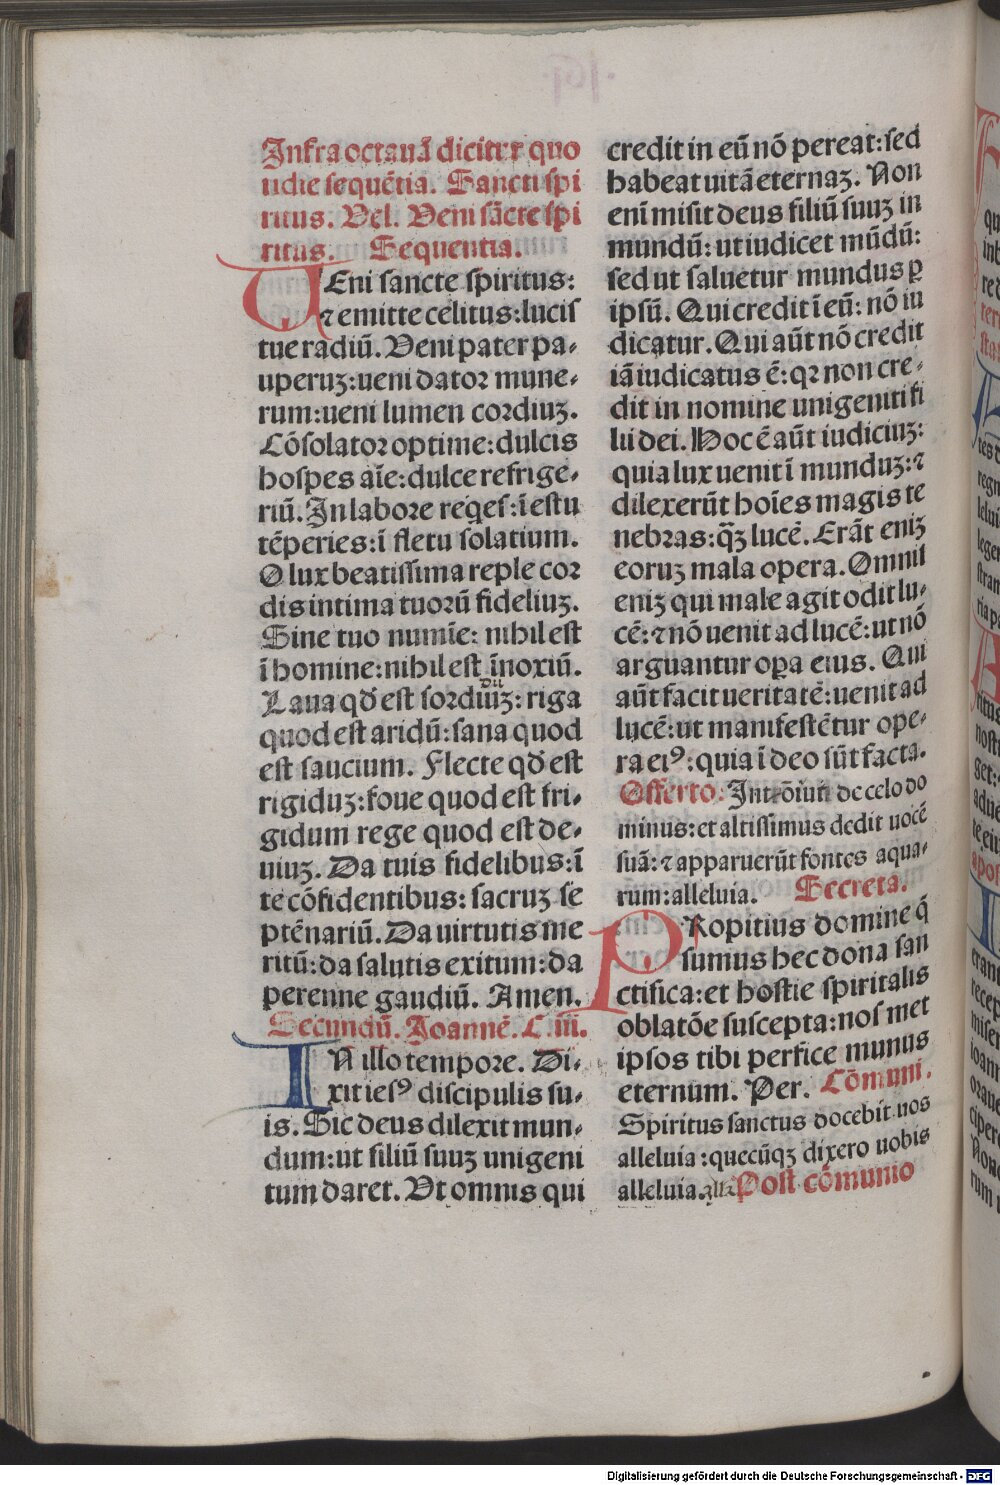 Infra octauã dicitur quo
tidie sequẽtia. Sancti spi
ritus. Vel. Veni sãcte spi
ritus. Sequentia.
VEni sancte spiritus:
⁊ emitte celitus:lucis
tue radiũ. Veni pater pa-
uperuꝫ:ueni dator mune-
rum:ueni lumen cordiuꝫ.
Cõsolator optime:dulcis
hospes aīe:dulce refrige-
riũ. In labore reqes:ī estu
tẽperies:ī fletu solatium.
O lux beatissima reple cor
dis intima tuorũ fideliuꝫ.
Sine tuo numīe: nihil est
ī homine:nihil est īnoxiũ.
Laua qď est sordiduꝫ: riga
quod est aridũ: sana quod
est saucium. Flecte qď est
rigiduꝫ:foue quod est fri-
gidum rege quod est de-
uiuꝫ. Da tuis fidelibus:ī
te cõfidentibus: sacruꝫ se
ptẽnariũ. Da uirtutis me
ritũ:da salutis exitum:da
perenne gaudiũ. Amen.
Secundũ. Joannẽ. C. iii.
IN illo tempore. Di-
xit iesꝰ discipulis su-
is. Sic deus dilexit mun-
dum:ut filiũ suuꝫ unigeni
tum daret. Vt omnis qui
credit in eũ nõ pereat:sed
habeat uitã eternaꝫ. Non
enī misit deus filiũ suuꝫ in
mundũ: ut iudicet mũdũ:
sed ut saluetur mundus ꝑ
ipsũ. Qui credit ī eũ: nõ iu
dicatur. Qui aũt nõ credit
iã iudicatus ẽ: qꝛ non cre-
dit in nomine unigeniti fi
lii dei. Hoc ẽ aũt iudiciuꝫ:
quia lux uenit ī munduꝫ:⁊
dilexerũt hoīes magis te
nebras:q̃ꝫ lucẽ. Erãt eniꝫ
eoruꝫ mala opera. Omnis
eniꝫ qui male agit odit lu-
cẽ:⁊ nõ uenit ad lucẽ:ut nõ
arguantur oꝑa eius. Qui
aũt facit ueritatẽ:uenit ad
lucẽ:ut manifestẽtur ope-
ra eiꝰ:quia ī deo sũt facta.
Offerto. Intõnuit de celo do
minus:et altissimus dedit uocẽ
suã:⁊ apparuerũt fontes aqua-
rum:alleluia. Secreta.
PRopitius domine q̃
sumus hec dona san
ctifica:et hostie spiritalis
oblatõe suscepta:nos met
ipsos tibi perfice munus
eternum. Per. Cõmuni.
Spiritus sanctus docebit uos
alleluia:quecũqꝫ dixero uobis
alleluia. alla Post cõmunio
Digitalisierung gefördert durch die Deutsche Forschungsgemeinschaft - DFG